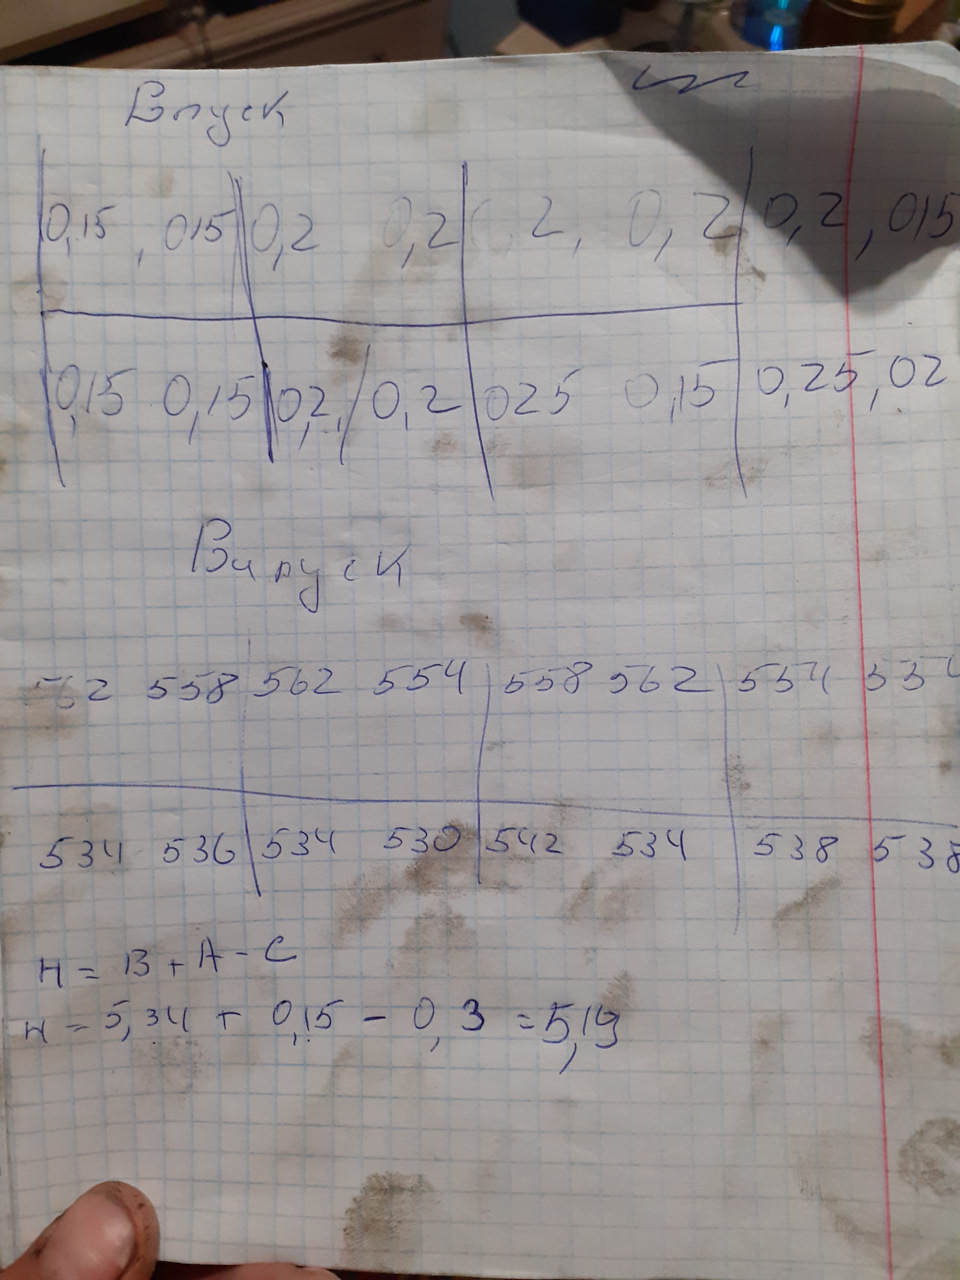 Впуск
0,15 , 015 0,2 0,2 0,2, 0,2 0,2, 015
0,15 0,15 02, 0,2 025 0,15 0,25, 02
Випуск
562 558 562 554 558 562 554 554
534 536 534 530 542 534 538 538
H = B + A - C
H = 5,34 + 0,15 - 0,3 = 5,19